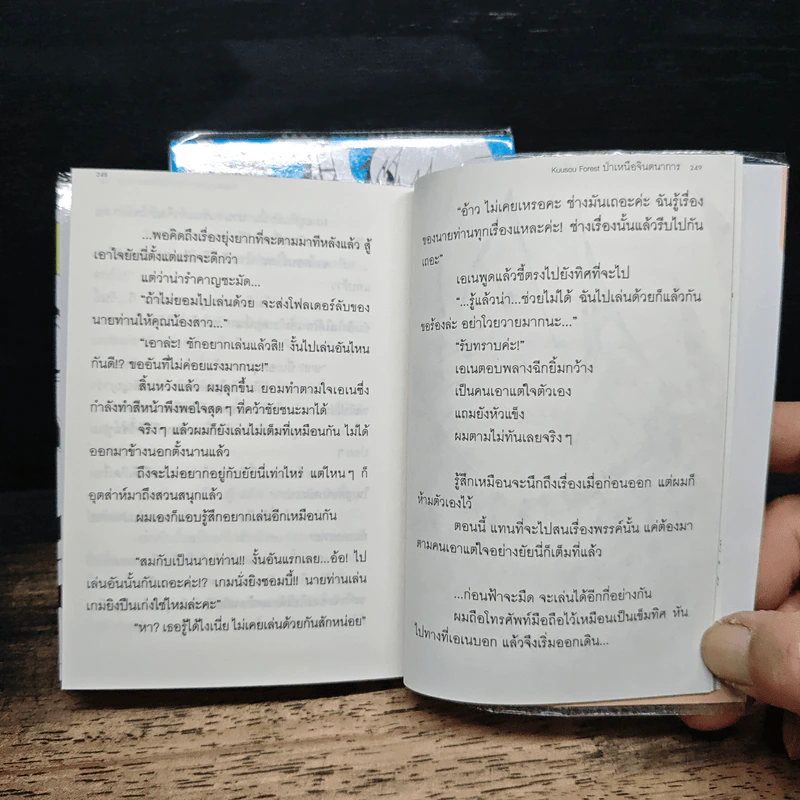 248
...พอคิดถึงเรื่องยุ่งยากที่จะตามมาทีหลังแล้ว สู้
เอาใจยัยนี่ตั้งแต่แรกจะดีกว่า
แต่ว่าน่ารำคาญชะมัด...
“ถ้าไม่ยอมไปเล่นด้วย จะส่งโฟลเดอร์ลับของ
นายท่านให้คุณน้องสาว...”
“เอาล่ะ! ชักอยากเล่นแล้วสิ!! งั้นไปเล่นอันไหน
กันดี!? ขออันที่ไม่ค่อยแรงมากนะ!”
สิ้นหวังแล้ว ผมลุกขึ้น ยอมทำตามใจเอเนซึ่ง
กำลังทำสีหน้าพึงพอใจสุดๆ ที่คว้าชัยชนะมาได้
จริงๆ แล้วผมก็ยังเล่นไม่เต็มที่เหมือนกัน ไม่ได้
ออกมาข้างนอกตั้งนานแล้ว
ถึงจะไม่อยากอยู่กับยัยนี่เท่าไหร่ แต่ไหนๆ ก็
อุตส่าห์มาถึงสวนสนุกแล้ว
ผมเองก็แอบรู้สึกอยากเล่นอีกเหมือนกัน
“สมกับเป็นนายท่าน!! งั้นอันแรกเลย...อ้อ! ไป
เล่นอันนั้นกันเถอะค่ะ!? เกมนั่งยิงซอมบี้!! นายท่านเล่น
เกมยิงปืนเก่งใช่ไหมล่ะคะ”
“หา? เธอรู้ได้ไงเนี่ย ไม่เคยเล่นด้วยกันสักหน่อย”
Kuusou Forest ป่าเหนือจินตนาการ 249
“อ้าว ไม่เคยเหรอคะ ช่างมันเถอะค่ะ ฉันรู้เรื่อง
ของนายท่านทุกเรื่องแหละค่ะ! ช่างเรื่องนั้นแล้วรีบไปกัน
เถอะ”
เอเนพูดแล้วชี้ตรงไปยังทิศที่จะไป
“...รู้แล้วน่า...ช่วยไม่ได้ ฉันไปเล่นด้วยก็แล้วกัน
ขอร้องล่ะ อย่าโวยวายมากนะ...”
“รับทราบค่ะ!”
เอเนตอบพลางฉีกยิ้มกว้าง
เป็นคนเอาแต่ใจตัวเอง
แถมยังหัวแข็ง
ผมตามไม่ทันเลยจริงๆ
รู้สึกเหมือนจะนึกถึงเรื่องเมื่อก่อนออก แต่ผมก็
ห้ามตัวเองไว้
ตอนนี้ แทนที่จะไปสนเรื่องพรรค์นั้น แค่ต้องมา
ตามคนเอาแต่ใจอย่างยัยนี่ก็เต็มที่แล้ว
...ก่อนฟ้าจะมืด จะเล่นได้อีกกี่อย่างกัน
ผมถือโทรศัพท์มือถือไว้เหมือนเป็นเข็มทิศ หัน
ไปทางที่เอเนบอก แล้วจึงเริ่มออกเดิน...